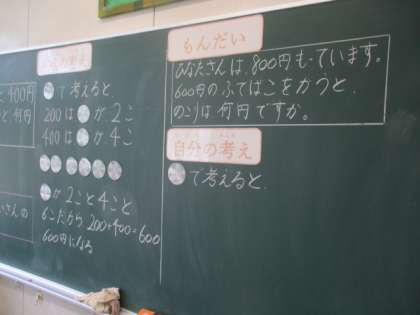 と400円
と何円
さんの
考え
で考えると
200は が2こ
400は が4こ
が2こと4こと
6こだから 200+400=600
600円になる
もんだい
ひなたさんは、800円もっています。
600円のふでばこをかうと、
のこりは何円ですか。
自分の考え
で考えると、